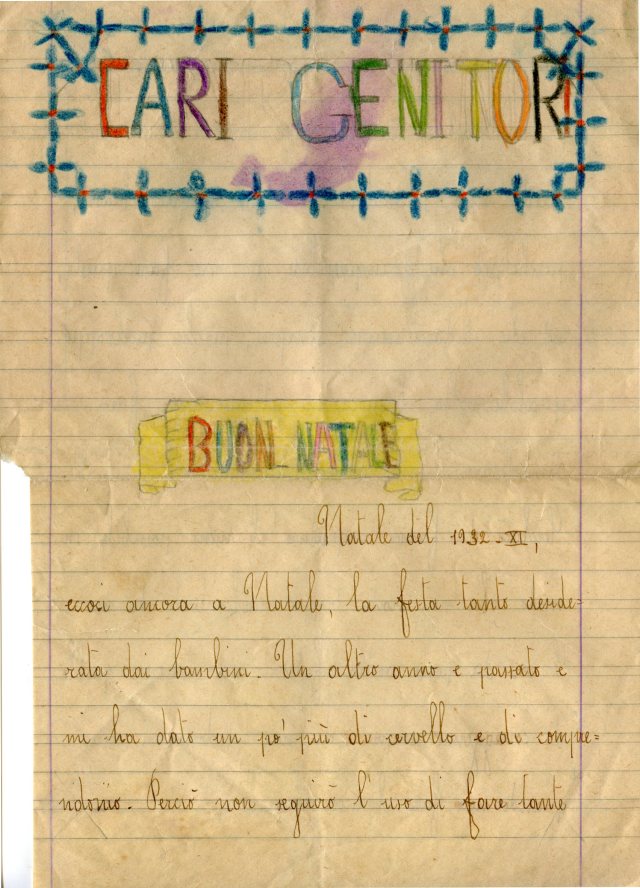 CARI GENITORI
BUON NATALE
Natale del 1932-XI,
eccoci ancora a Natale, la festa tanto deside=
rata dai bambini. Un altro anno e passato e
mi ha dato un po' più di cervello e di compre=
ndonio. Perciò non seguirò l'uso di fare tante